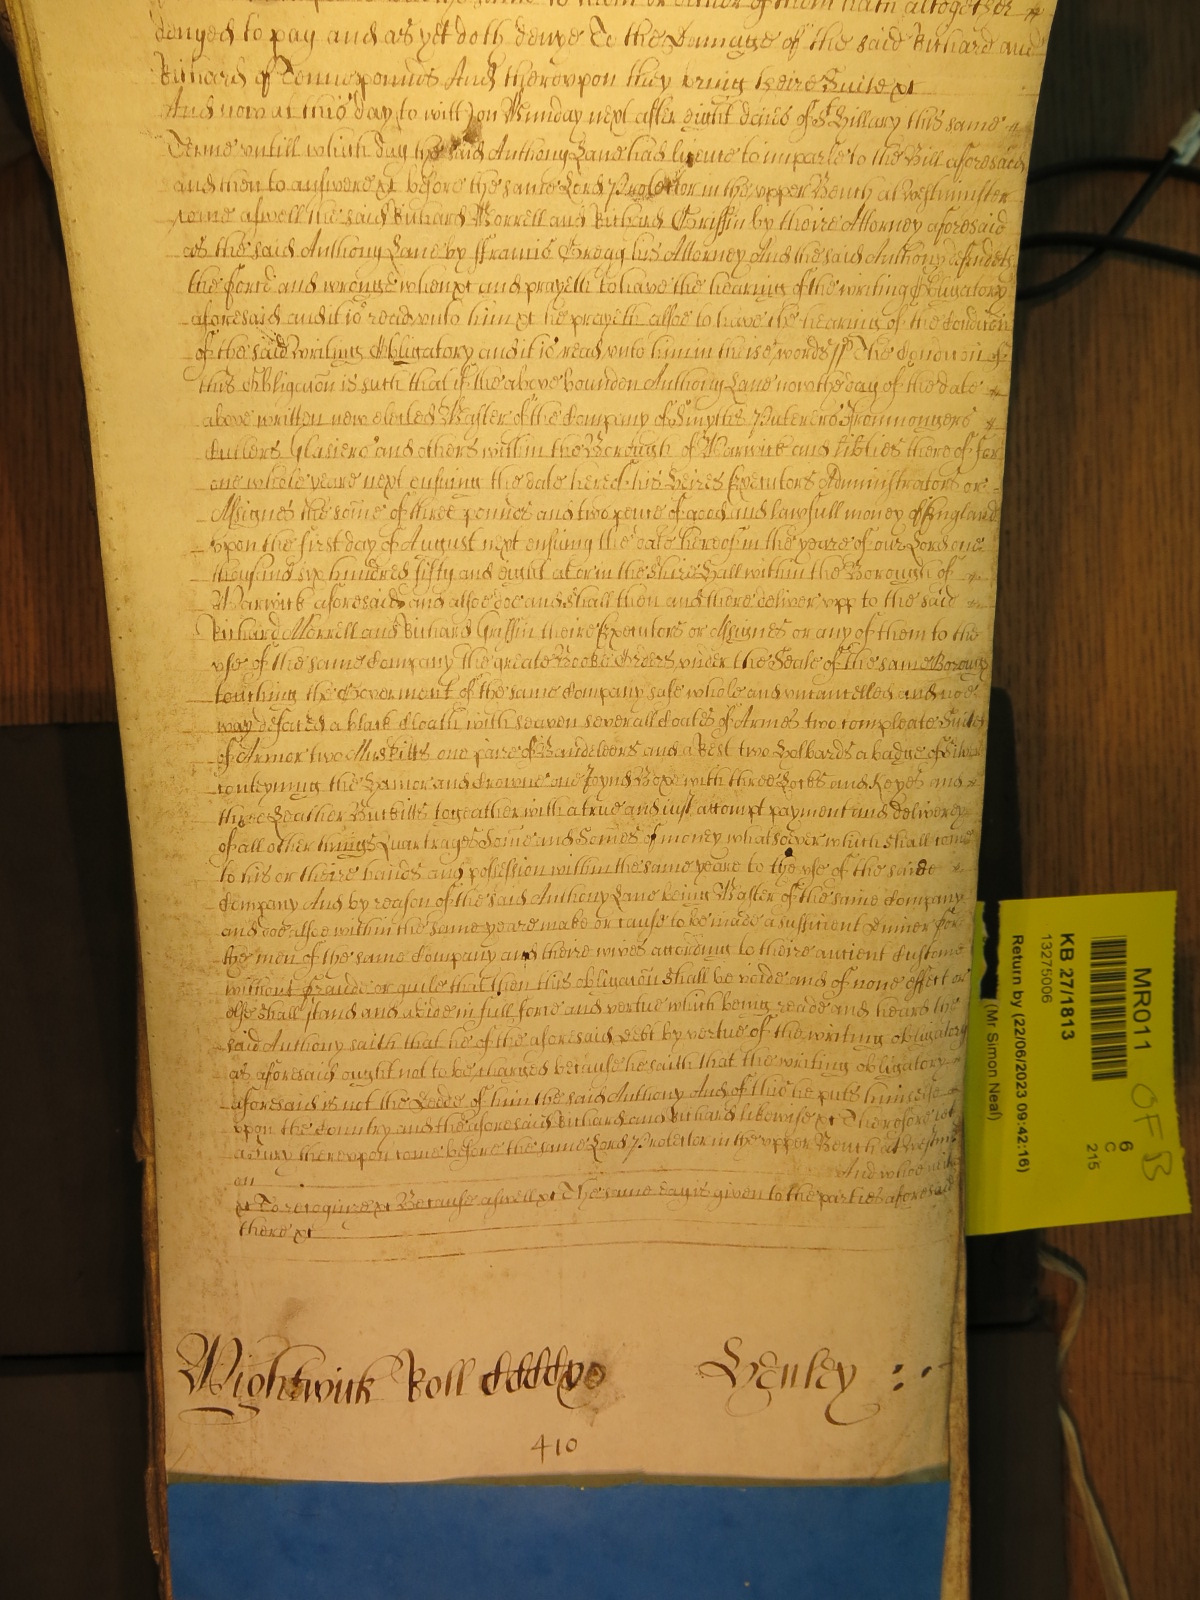 the same to them or either of them hath altogether
denyed to pay and as yet doth denye To the Damage of the said Richard and
Richard of Tenne pounds And thereupon they bring theire Suite &c
And now at this day to witt on Munday next after eight daies of St Hillary this same
Terme untill which day the said Anthony Lane had licence to imparle to the Bill aforesaid
and then to answere &c before the same Lord Protector in the upper Bench at Westminster
come aswell the said Richard Morrell and Richard Griffin by theire Attorney aforesaid
as the said Anthony Lane by ffrancis Gregg his Attorney And the said Anthony defendeth
the force and wronge when &c and prayeth to have the hearing of the writing Obligatory
aforesaid and it is read unto him &c he prayeth alsoe to have the hearing of the Condicon
of the said writing Obligatory and it is read unto him in theise words ss The Condicon of
this Obligacon is such that if the above bounden Anthony Lane now the day of the date
above written new elected Master of the Company of Smyths Puterers Ironmongers
Cutlers Glasiers and others within the Borough of Warwick and lib'ties there of for
one whole yeare next ensuing the date hereof his Heires Executors Administrators or
Assignes the some of three pounds and two pence of good and lawfull money of England
upon the first day of August next ensuing the date hereof in the yeare of our Lord one
thousand six hundred fifty and eight at or in the Shire Hall within the Borough of
Warwick aforesaid and alsoe doe and shall then and there deliver upp to the said
Richard Morrell and Richard Griffin theire Executors or Assignes or any of them to the
use of the same Company The greate Booke Orders under the Seale of the same Borough
touching the Goverment of the same Company safe whole and uncancelled and noe
way defaced a black Cloath with seaven severall Coates of Armes two compleate Suites
of Armor two Muskitts one paire of Bandeleers and a Rest two Holbards a badge of Silver
conteyning the Hamor and Crowne one Joynd Boxe with three Locks and Keyes and
three Leather Buckitts togeather with a true and just accompt payment and delivery
of all other things Quartrages Some and Somes of money whatsoever which shall come
to his or theire hands and possession within the same yeare to the use of the saide
Company And by reason of the said Anthony Lane being Master of the same Company
and doe alsoe within the same yeare make or cause to be made a sufficient Dinner for
the men of the same Company and theire wives according to theire antient Custome
without fraude or guile that then this obligacon shall be voide and of none effect or
else shall stand and abide in full force and vertue which being reade and heard the
said Anthony saith that he of the aforesaid debt by vertue of the writing obligatory
as aforesaid ought not to be charged because he saith that the writing obligatory
aforesaid is not the Deede of him the said Anthony And of this he puts himselfe
upon the Country and the aforesaid Richard and Richard likewise &c Therefore let
a Jury thereupon come before the same Lord Protector in the upper Bench at Westm
on And who neither
&c To recognize &c Because aswell &c The same day is given to the parties aforesaid
there &c
Wightwick Roll CCCCxo Henley
410
MR011
KB 27/1813
13275006
Return by (22/06/2023 09:42:16)
(Mr Simon Neal)
6
C
215
OF B